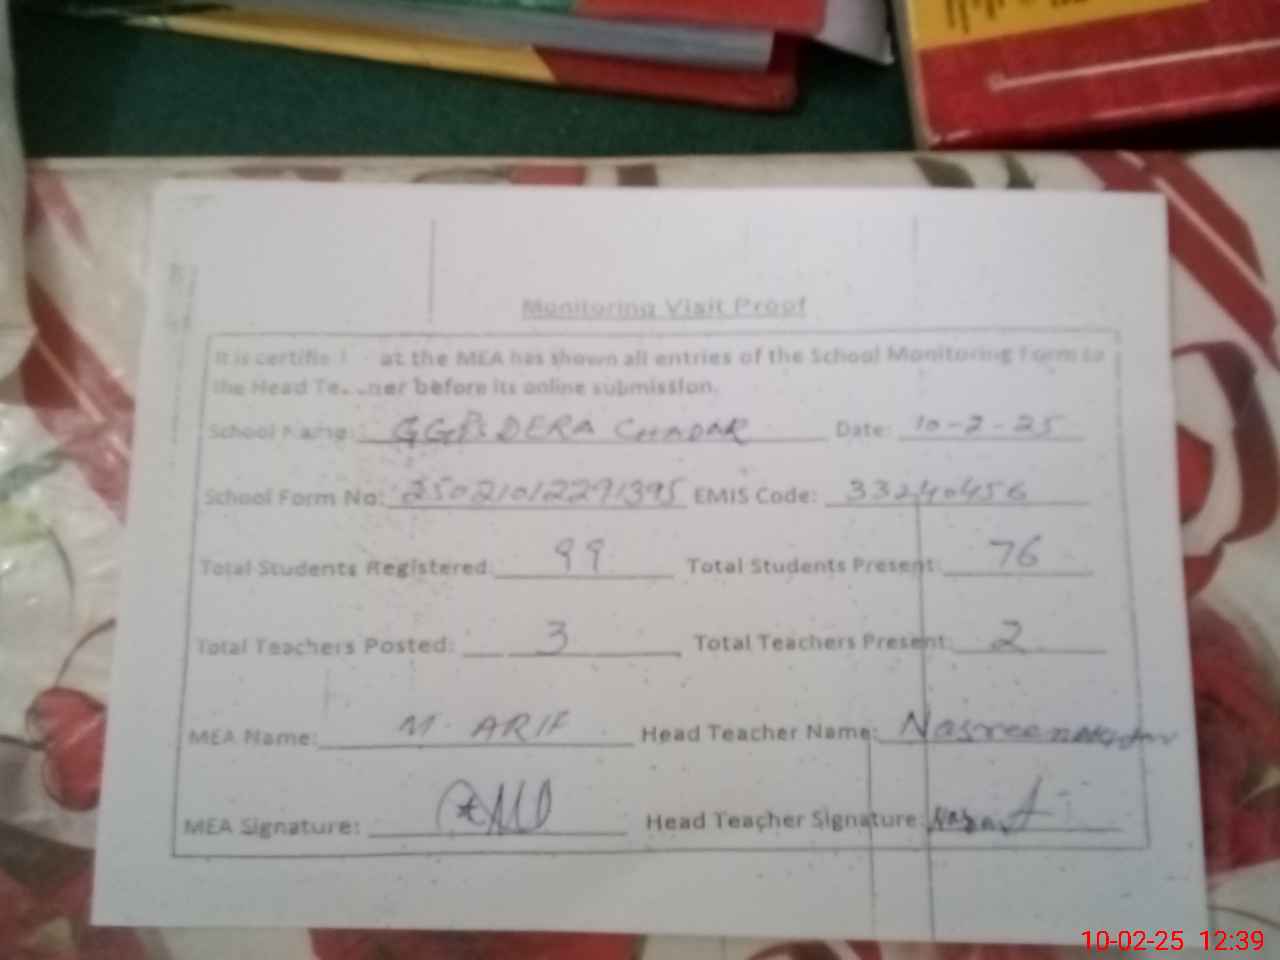 Monitoring Visit Proof
It is certifie at the MEA has shown all entries of the School Monitoring Form to
the Head before its online submission.
School Name: GGPS DERA CHADAR Date: 10-2-25
School Form No: 25021012291395 EMIS Code: 33240456
Total Students Registered: 99 Total Students Present: 76
Total Teachers Posted: 3 Total Teachers Present: 2
MEA Name: M. ARIF Head Teacher Name: Nasreen
MEA Signature: Head Teacher Signature:
10-02-25 12:39